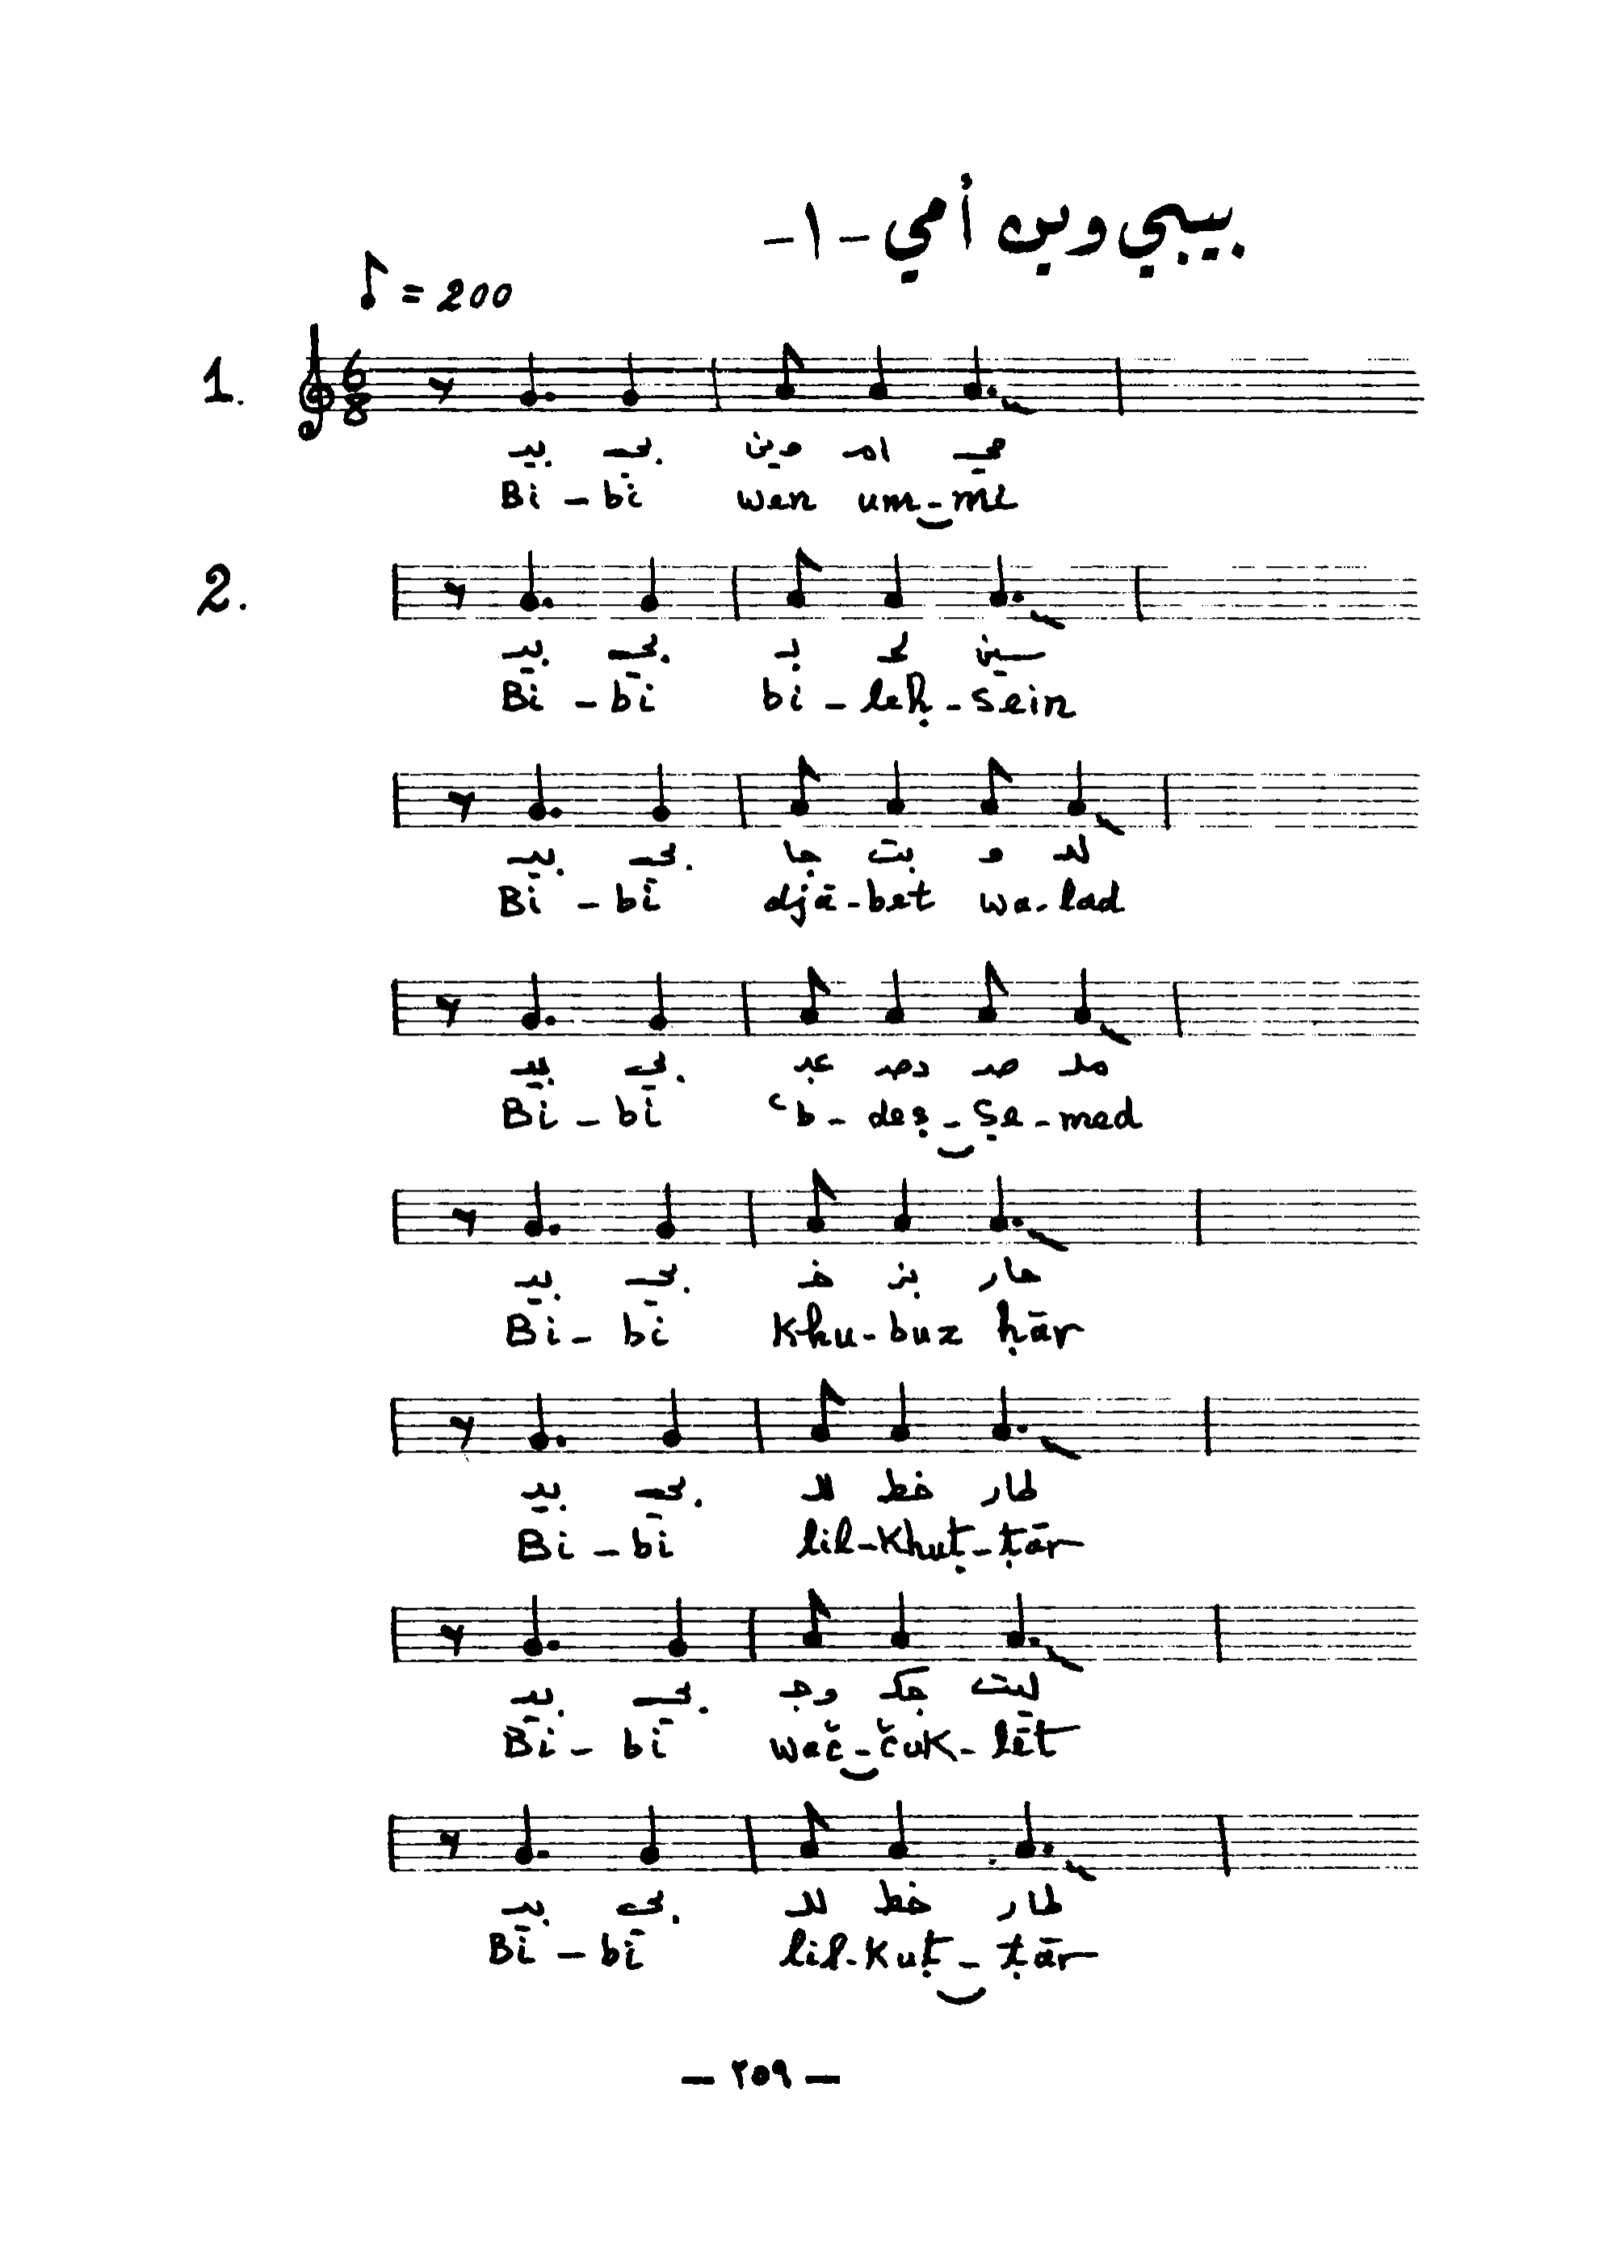 بيبي وين أمي -١-
♪ = 200
1.
6
8
بيـ بي وين امـ مي
Bi - bi wen um - mi
2.
بيـ بي بـ لحـ سين
Bi - bi bi - leḥ - sein
بيـ بي جا بت و لد
Bī - bī djā - bet wa - lad
بيـ بي عبـ دصـ صـ مد
Bī - bī ʿb - deṣ - ṣe - med
بيـ بي خـ بز حار
Bi - bi Khu - buz ḥār
بيـ بي للـ خطـ طار
Bi - bi lil - Khuṭ - ṭār
بيـ بي وجـ جكـ ليت
Bī - bī wač - čuk - lēt
بيـ بي للـ خطـ طار
Bī - bī lil - Kuṭ - ṭār
- ٢٥٩ -